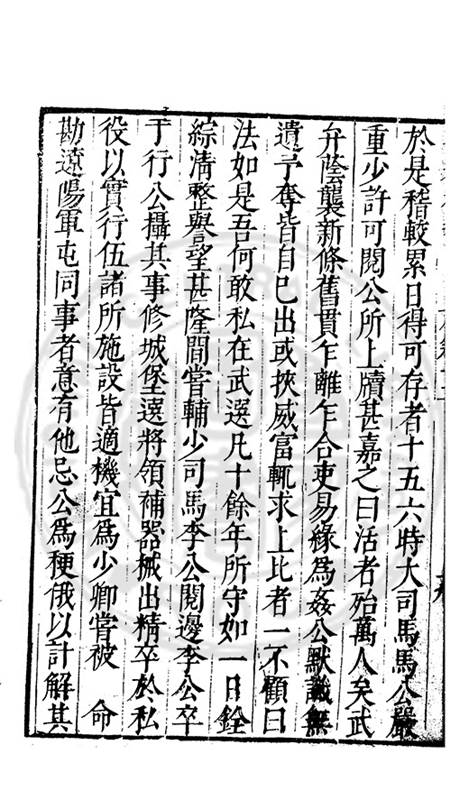 於是稽較累日得可存者十五六時大司馬馬公嚴
重少許可閱公所上牘甚嘉之曰活者殆萬人矣武
弁蔭襲新條舊貫乍離乍合吏易緣為姦公默識無
遺予奪皆自己出或挾威富輒求上比者一不顧曰
法如是吾何敢私在武選凡十餘年所守如一日銓
綜清整譽望甚隆間嘗輔少司馬李公閱邊李公卒
于行公攝其事修城堡選將領補器械出精卒於私
役以實行伍諸所施設皆適機宜為少卿嘗被 命
勘遼陽軍屯同事者意有他忌公為梗俄以計解其